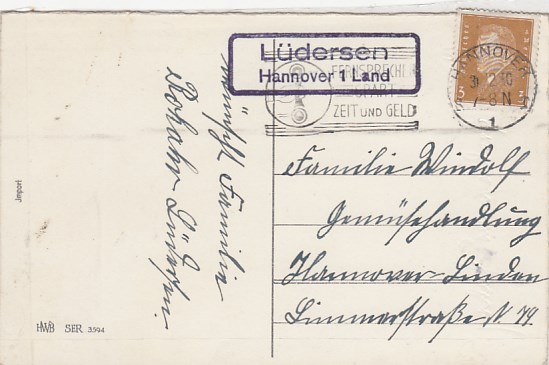 Lüdersen
Hannover 1 Land
FERNSPRECHEN
SPART
ZEIT UND GELD
HANNOVER
31.12.30
7-8 N
1
3 3
wünscht Familie
Lüdersen.
Familie Windolf
Gemüsehandlung
Hannover-Linden
Limmerstraße N 79
Import
HWB SER. 3594